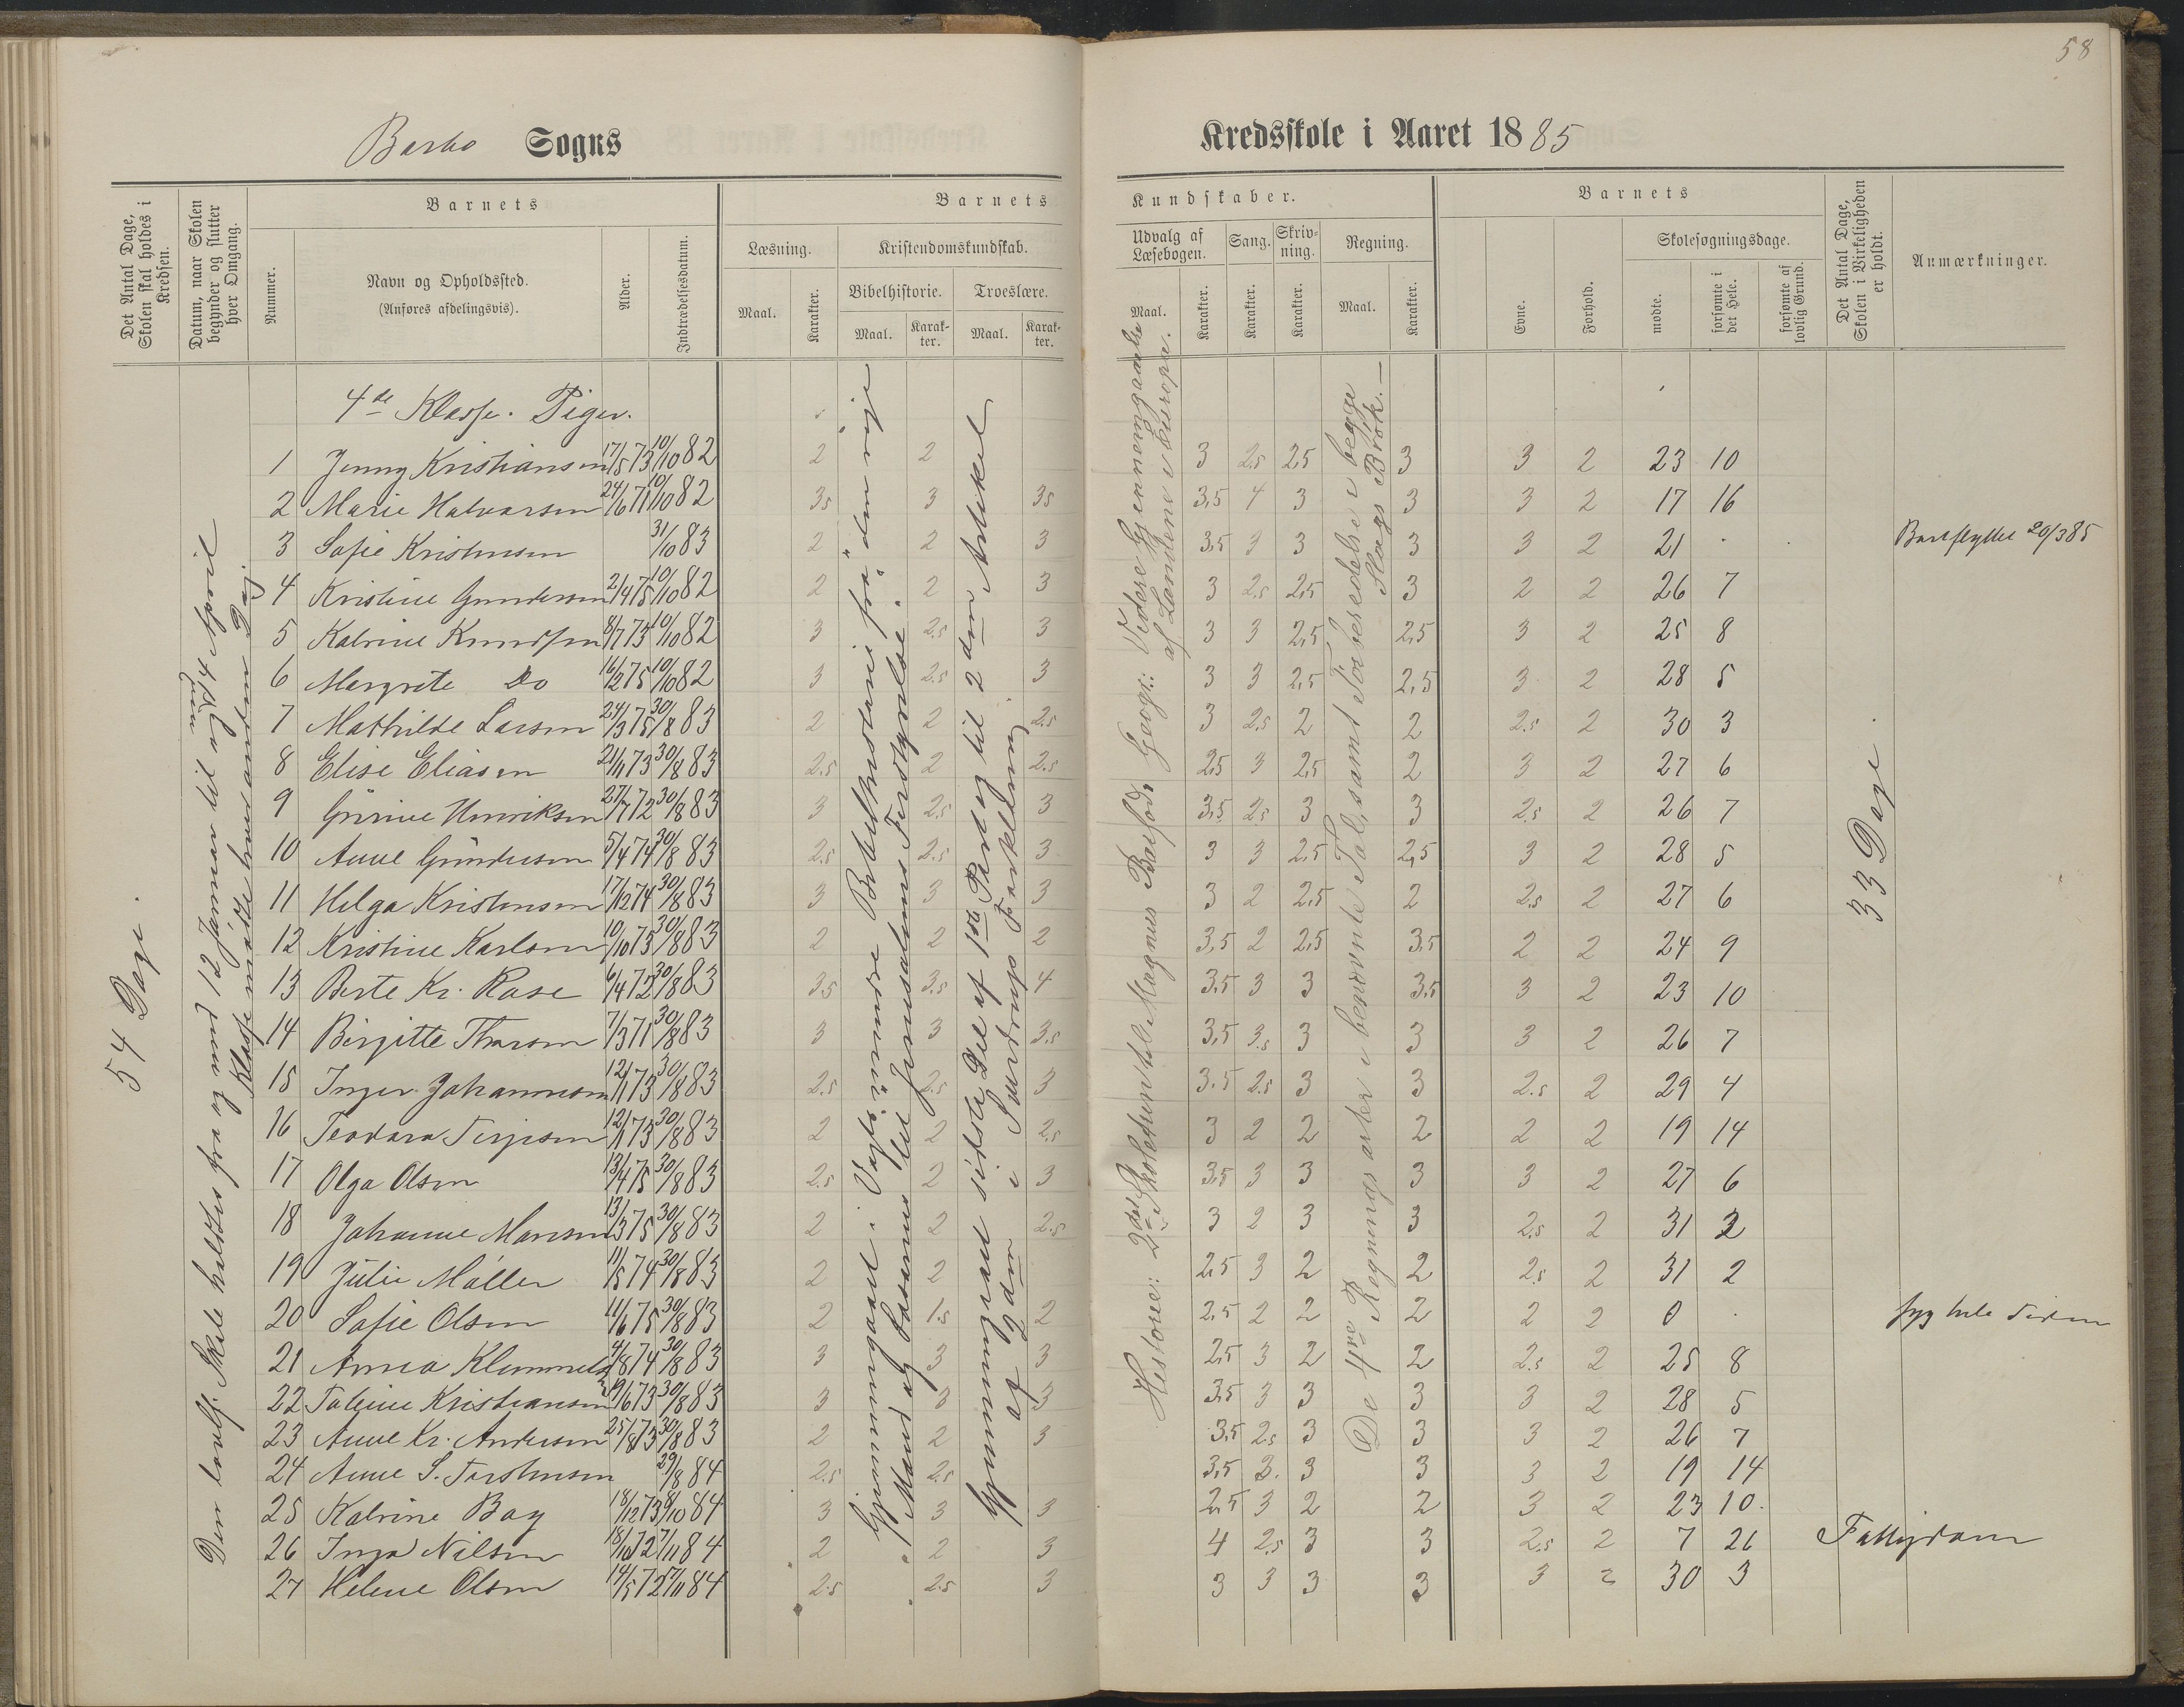 58
Barbo Sogns
Kredsskole i Aaret 1885
Det Antal Dage, Skolen skal holdes i Kredsen.
Datum, naar Skolen begynder og slutter hver Omgang.
Barnets
Nummer.
Navn og Opholdssted.
(Anføres afdelingsvis).
Alder.
Indtrædelsesdatum.
Barnets
Læsning.
Maal.
Karakter.
Kristendomskundskab.
Bibelhistorie.
Maal.
Karakter.
Troeslære.
Maal.
Karakter.
Kundskaber.
Udvalg af Læsebogen.
Maal.
Karakter.
Sang.
Karakter.
Skrivning.
Karakter.
Regning.
Maal.
Karakter.
Barnets
Evne.
Forhold.
Skolesøgningsdage.
mødte.
forsømte i det Hele.
forsømte af lovlig Grund.
Det Antal Dage, Skolen i Virkeligheden er holdt.
Anmærkninger.
54 Dage.
Den lovbf. Skole holdtes fra og med 12 Januar til og med 4 April
Klasse mødte hver anden Dag
Gjennemgaaet i Vogts mindre Bibelhistorie fra "den rige
Mand og Lasarus" til "Jerusalems Forstyrrelse".
Gjennemgaaet sidste Del af 1ste Part og til 2den Artikel
af 2den i Sverdrups Forklaring
Historie: 2det Skoletrin hele Magnus Barfods Geogr.: Videre Gjennemgaaelse
af Landene i Europa.
De 4re Regningsarter i benævnte Tal, samt Forberedelse i begge
Slags Brøk.
33 Dage.
4de Klasse. Piger.
1 Jenny Kristiansen 17/5 73 10/10 82 2 2 3 2,5 2,5 3 3 2 23 10
2 Marie Halvorsen 24/6 71 10/10 82 3,5 3 3,5 3,5 4 3 3 3 2 17 16
3 Sofie Kristensen 31/10 83 2 2 3 3,5 3 3 3 3 2 21 Bortflyttet 20/3 85
4 Kristine Gundersen 2/4 75 10/10 82 2 2 3 3 2,5 2,5 3 2 2 26 7
5 Katrine Knudsen 8/7 73 10/10 82 3 2.5 3 3 3 2,5 2,5 3 2 25 8
6 Margrete Do 16/2 75 10/10 82 3 2.5 3 3 3 2,5 2,5 3 2 28 5
7 Mathilde Larsen 24/3 75 30/8 83 2 2 2.5 3 2,5 2 2 2.5 2 30 3
8 Elise Eliasen 21/1 73 30/8 83 2.5 2 2.5 2,5 3 2,5 2 3 2 27 6
9 Gurine Henriksen 27/7 72 30/8 83 3 2.5 3 3,5 2,5 3 3 2.5 2 26 7
10 Anne Gundersen 5/4 74 30/8 83 2.5 2.5 3 3 3 2,5 2,5 3 2 28 5
11 Helga Kristensen 17/12 74 30/8 83 3 3 3 3 2 2,5 2 2.5 2 27 6
12 Kristine Karlsen 10/10 73 30/8 83 2 2 2 3,5 2 2,5 3,5 2 2 24 9
13 Berte Kr. Rose 6/4 72 30/8 83 3.5 3.5 4 3,5 3 3 3,5 3 2 23 10
14 Birgitte Thorsen 7/3 71 30/8 83 3 3 3.5 3,5 3.5 3 3 3 2 26 7
15 Inger Johannesen 12/1 73 30/8 83 2.5 2.5 3 3.5 2.5 3 3 2.5 2 29 4
16 Teodora Terjesen 12/1 73 30/8 83 2 2 2.5 3 2 2 2 2 2 19 14
17 Olga Olsen 13/4 75 30/8 83 2.5 2 3 3,5 3 3 3 3 2 27 6
18 Johanne Monsen 13/3 75 30/8 83 2 2 2.5 3 2 3 3 2.5 2 31 2
19 Julie Møller 11/5 74 30/8 83 2 2 2,5 3 2 2 2.5 2 31 2
20 Sofie Olsen 11/6 75 30/8 83 2 1.5 2 2,5 2 2 2 2 2 0 syg hele Tiden
21 Anna Klemmetsen 4/8 74 30/8 83 3 3 3 2,5 3 2 2 2.5 2 25 8
22 Taline Kristiansen 19/6 73 30/8 83 3 3 3 3,5 3 3 3 3 2 28 5
23 Anne Kr. Andersen 25/8 73 30/8 83 2 2 3 3,5 2.5 3 3 3 2 26 7
24 Anne S. Torstensen 29/8 84 2.5 2.5 3,5 3. 3 3 3 2 19 14
25 Katrine Bay 18/12 73 8/10 84 3 3 3 2,5 3 2 2 3 2 23 10.
26 Inga Nilsen 18/10 72 7/11 84 2 2 3 4 2.5 3 3 2.5 2 7 26 Fattigdom
27 Helene Olsen 14/5 72 7/11 84 2.5 2.5 3 3 3 3 3 3 2 30 3